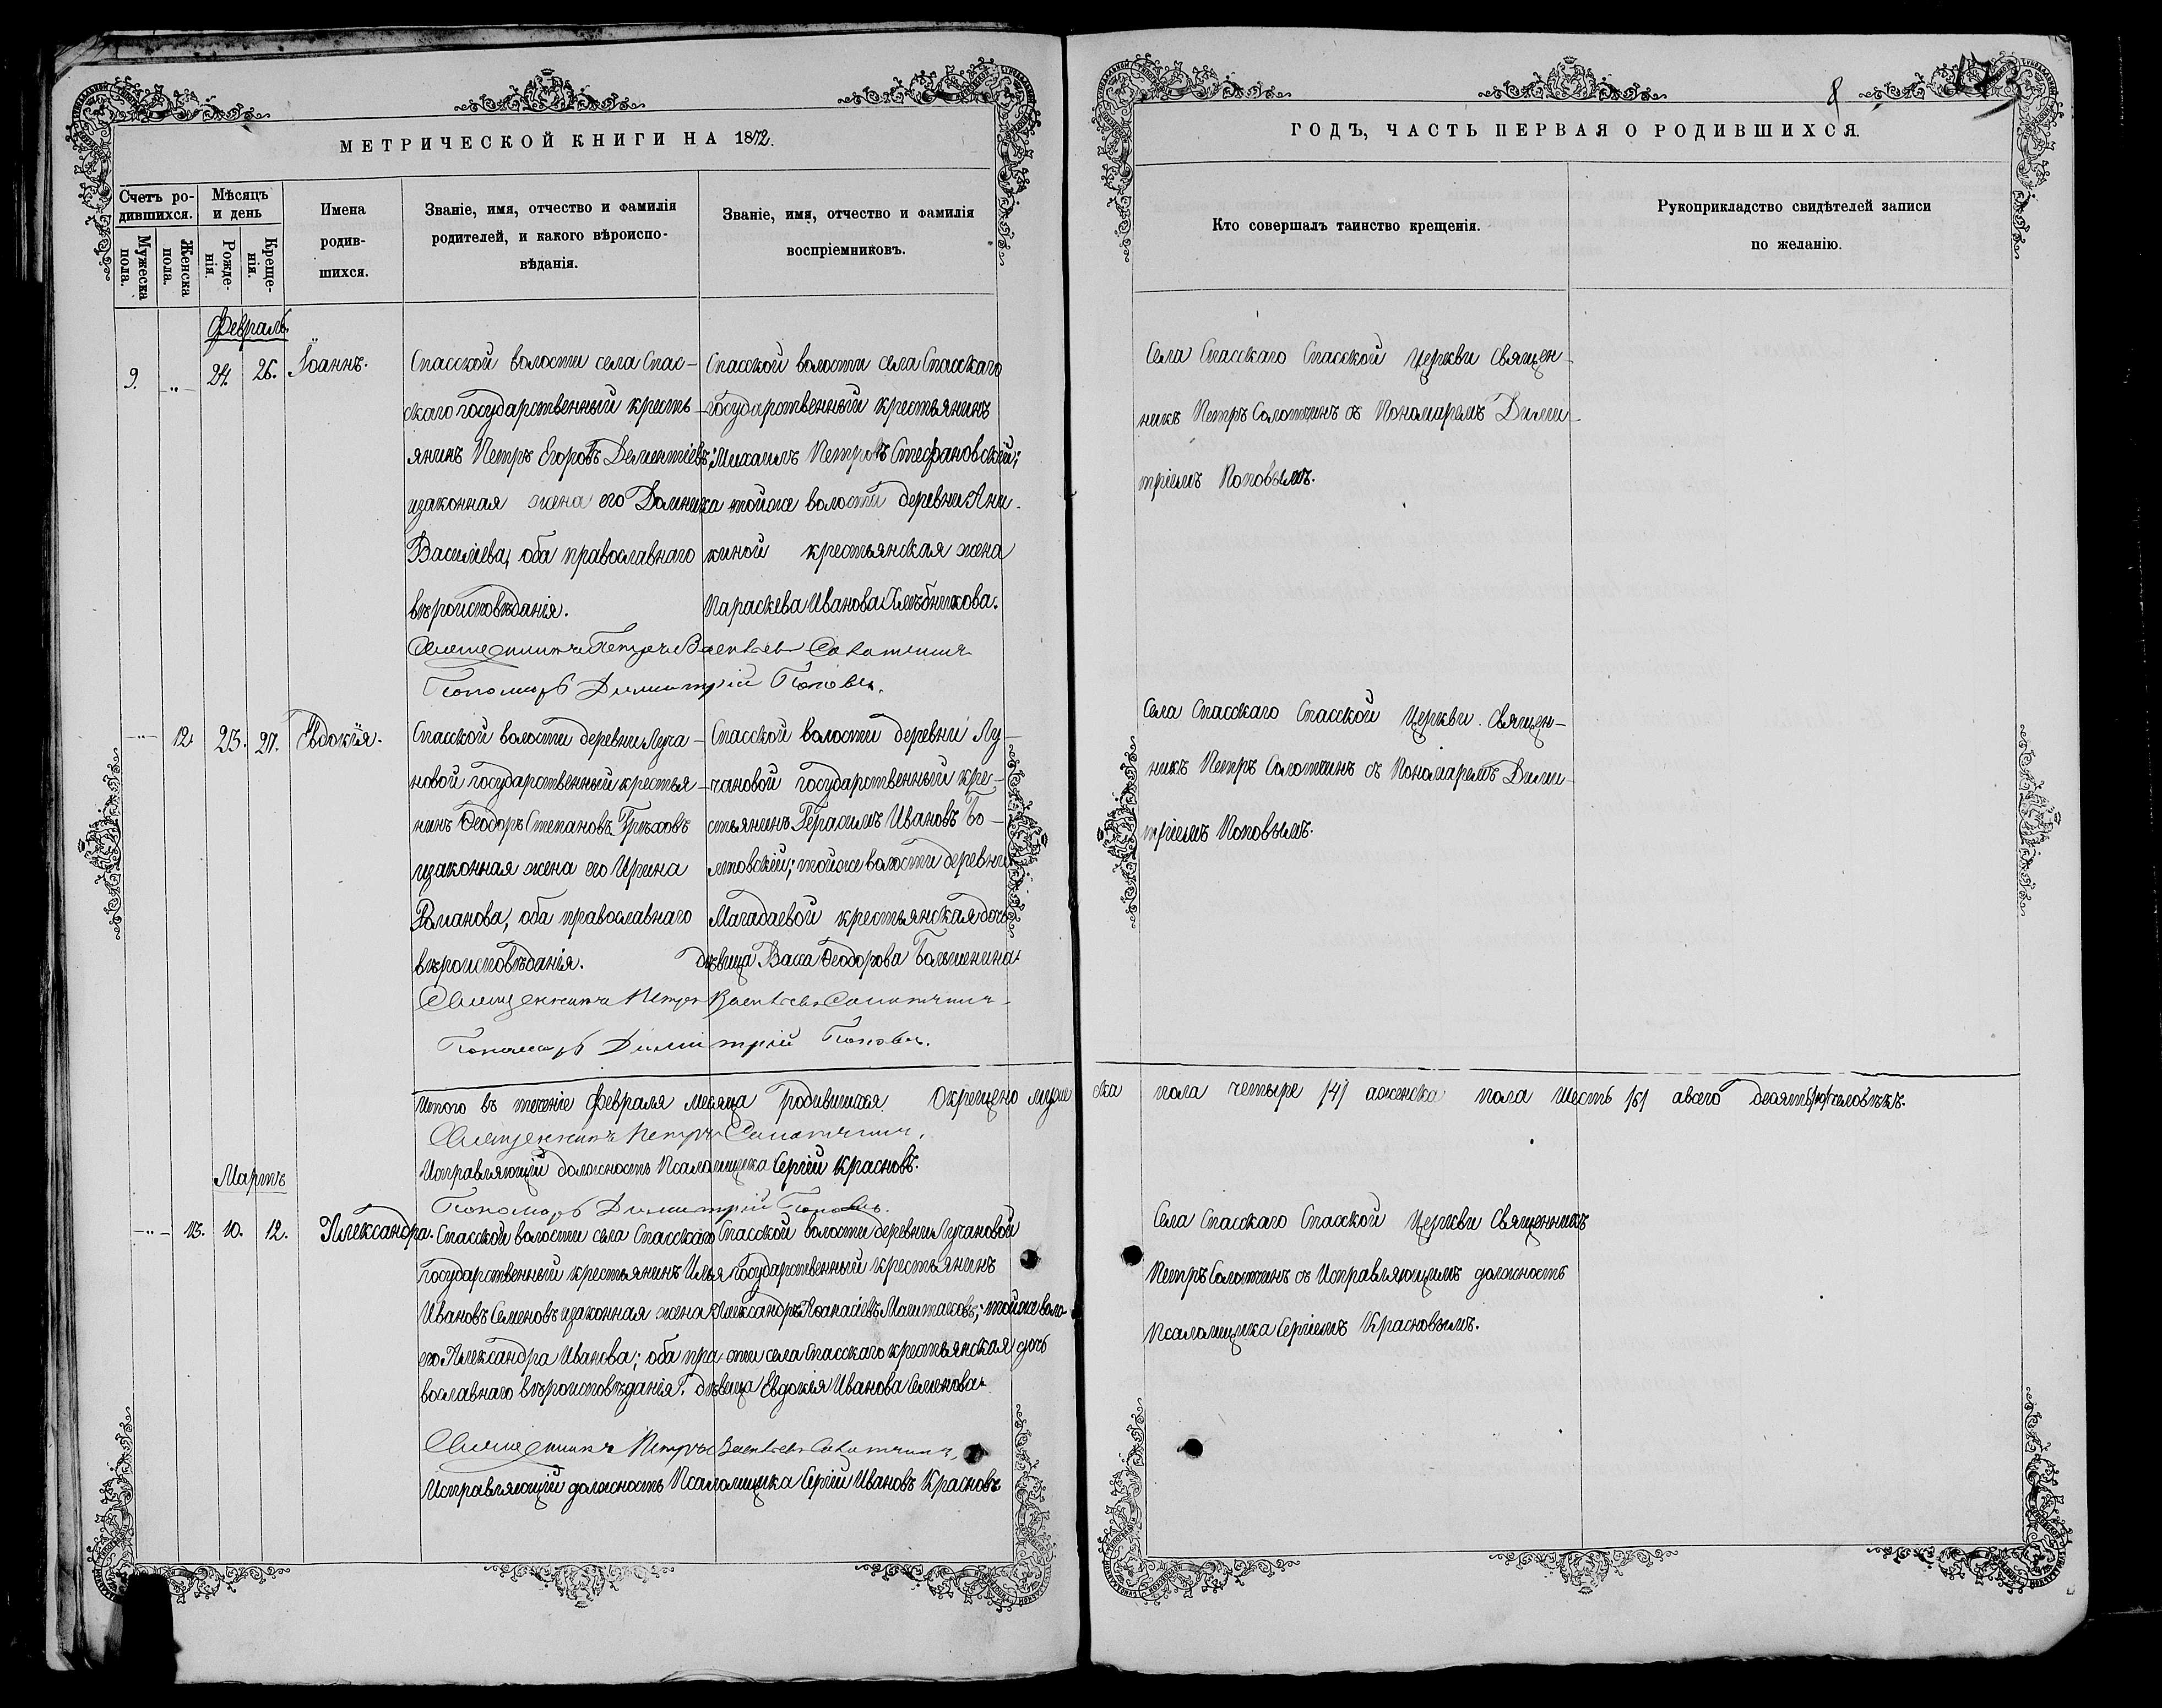 МЕТРИЧЕСКОЙ КНИГИ НА 1872.
Счетъ ро-
дившихся.
Мужеска
пола.
Женска
пола.
Мѣсяцъ
и день
Рожде-
нія.
Креще-
нія.
Имена
родив-
шихся.
Званіе, имя, отчество и фамилія
родителей, и какого вѣроиспо-
вѣданія.
Званіе, имя, отчество и фамилія
воспріемниковъ.
Февраль.
9. „ 24. 26. Іоаннъ.
Спасской волости села Спас-
скаго государственный кресть-
янинъ Петръ Егоровъ Дементіевъ
изаконная жена его Домника
Василіева, оба православнаго
вѣроисповѣданія.
Спасской волости села Спасскаго
государственный крестьянинъ
Михаилъ Петровъ Стефановскій;
тойже волости деревни Ани-
киной крестьянская жена
Параскева Иванова Хлѣбникова.
Священникъ Петръ Васильевъ Солотчинъ
Пономарь Димитрій Поповъ.
„ 12. 23. 27. Евдокія.
Спасской волости деревни Луча-
новой государственный крестья-
нинъ Ѳеодоръ Степановъ Грѣховъ
изаконная жена его Ирина
Романова, оба православнаго
вѣроисповѣданія.
Спасской волости деревни Лу-
чановой государственный кре-
стьянинъ Герасимъ Ивановъ Бо-
лтовскій; тойже волости деревни
Магадаевой крестьянская дочь
дѣвица Васса Ѳеодорова Большенина.
Священникъ Петръ Васильевъ Солотчинъ
Пономарь Димитрій Поповъ.
Итого въ теченіе Февраля месяца родившихся Окрещено муже
Священникъ Петръ Солотчинъ.
Исправляющій должность Псаломщика Сергій Красновъ.
Пономарь Димитрій Поповъ.
Мартъ
„ 13. 10. 12. Александра.
Спасской волости села Спасскаго
государственный крестьянинъ Илья
Ивановъ Семеновъ изаконная жена
его Александра Иванова; оба пра-
вославнаго вѣроисповѣданія.
Спасской волости деревни Лучановой
государственный крестьянинъ
Александръ Аѳанасіевъ Маштаковъ; тойже воло-
сти села Спасскаго крестьянская дочь
дѣвица Евдокія Иванова Семенова.
Священникъ Петръ Васильевъ Солотчинъ
Исправляющій должность Псаломщика Сергій Ивановъ Красновъ
8
ГОДЪ, ЧАСТЬ ПЕРВАЯ О РОДИВШИХСЯ.
Кто совершалъ таинство крещенія.
Рукоприкладство свидѣтелей записи
по желанію.
Села Спасскаго Спасской Церкви Священ-
никъ Петръ Солотчинъ съ Пономаремъ Дими-
тріемъ Поповымъ.
Села Спасскаго Спасской Церкви Священ-
никъ Петръ Солотчинъ съ Пономаремъ Дими-
тріемъ Поповымъ.
ска пола четыре /4/ аженска пола Шесть /6/ авсего десять /10/ человѣкъ.
Села Спасскаго Спасской Церкви Священникъ
Петръ Солотчинъ съ Исправляющимъ должность
Псаломщика Сергіемъ Красновымъ.